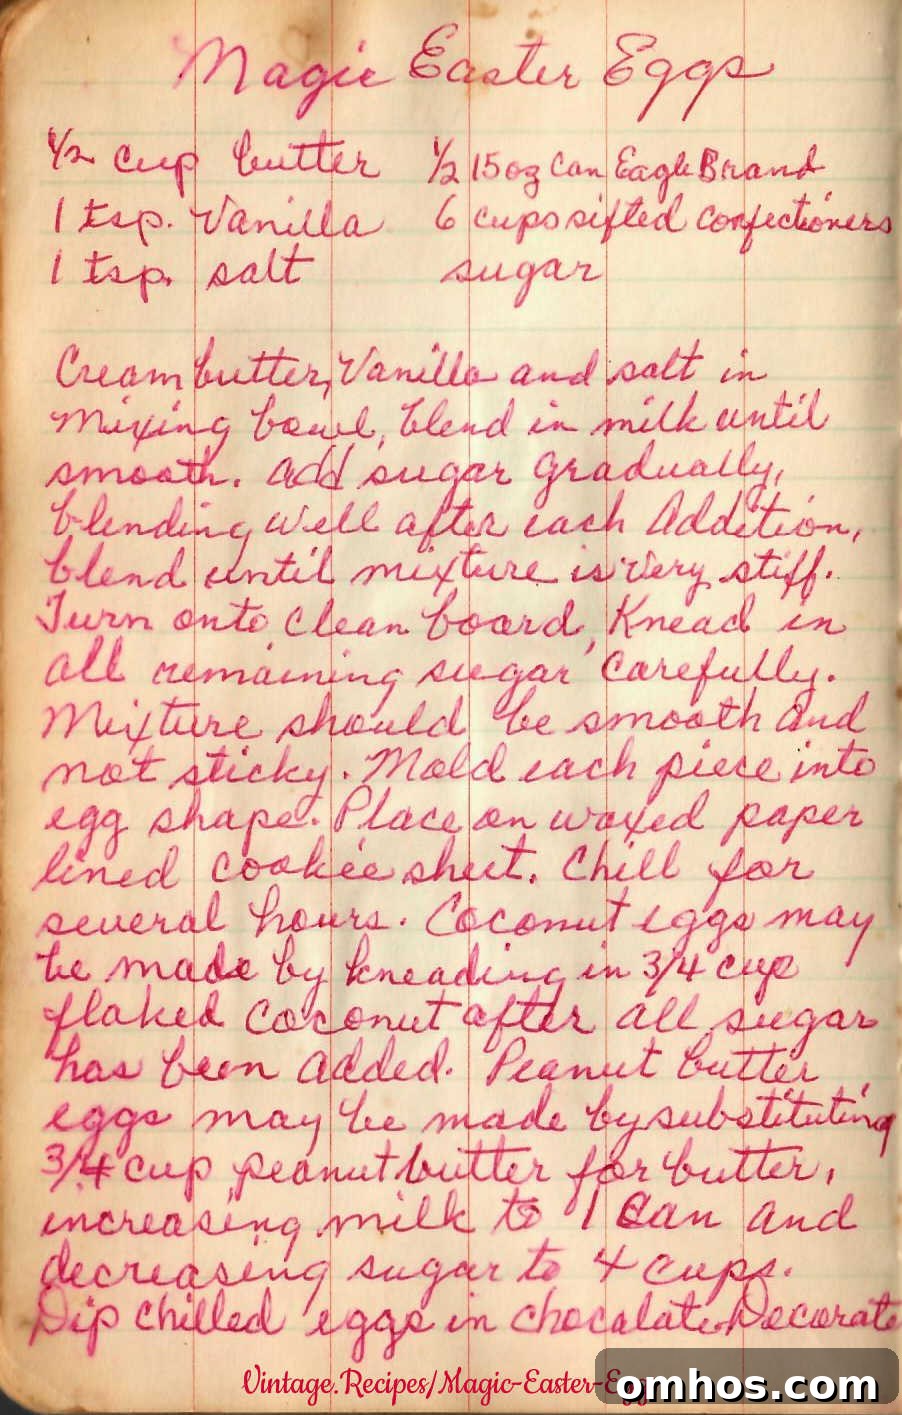 Magic Easter Eggs
1/2 cup butter 1/2 15 oz Can Eagle Brand
1 tsp. Vanilla 6 cups sifted confectioners
1 tsp. salt sugar
Cream butter, Vanilla and salt in
Mixing bowl, blend in milk until
smooth. add sugar gradually,
blending well after each Addition,
blend until mixture is very stiff.
Turn onto clean board, Knead in
all remaining sugar carefully.
Mixture should be smooth and
not sticky. Mold each piece into
egg shape. Place on waxed paper
lined cookie sheet. Chill for
several hours. Coconut eggs may
be made by kneading in 3/4 cup
flaked coconut after all sugar
has been added. Peanut butter
eggs may be made by substituting
3/4 cup peanut butter for butter,
increasing milk to 1 Can and
decreasing sugar to 4 cups.
Dip chilled eggs in chocolate. Decorate
Vintage.Recipes/Magic-Easter-
omhos.com